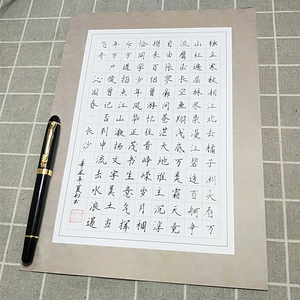 独立寒秋湘江北去橘子洲头看万
山红遍层林尽染漫江碧透百舸争
流鹰击长空鱼翔浅底万类霜天竞
自由怅寥廓问苍茫大地谁主沉浮
携来百侣曾游忆往昔峥嵘岁月稠
恰同学少年风华正茂书生意气挥
斥方遒指点江山激扬文字粪土当
年万户侯曾记否到中流击水浪遏
飞舟 沁园春·长沙
辛丑年夏